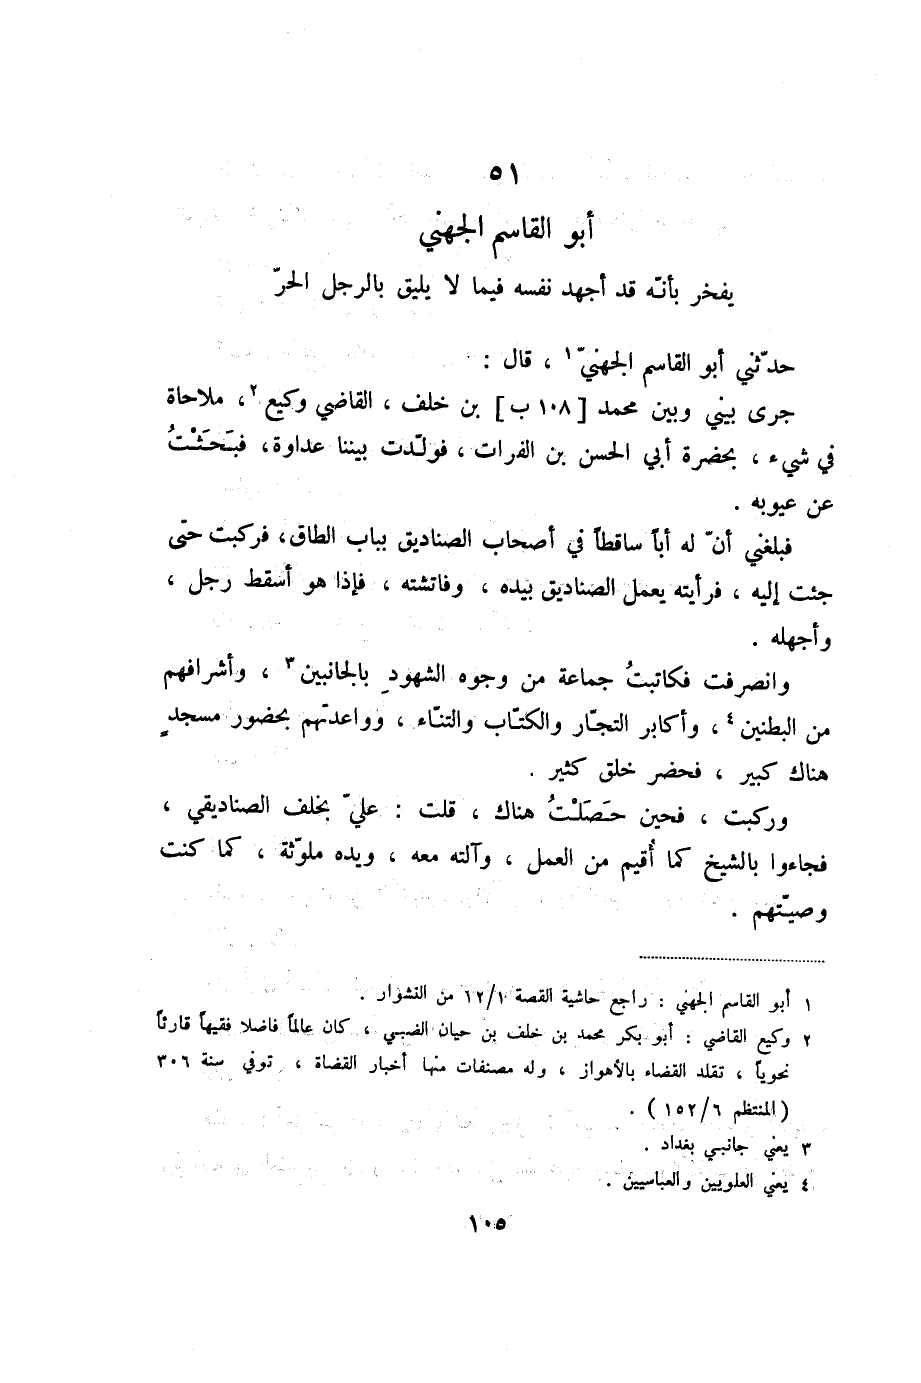 ٥١
أبو القاسم الجهني
يفخر بأنّه قد أجهد نفسه فيما لا يليق بالرجل الحرّ
حدّثني أبو القاسم الجهنيّ١ ، قال :
جرى بيني وبين محمد [ ١٠٨ ب ] بن خلف ، القاضي وكيع٢، ملاحاة
في شيء ، بحضرة أبي الحسن بن الفرات ، فولّدت بيننا عداوة، فبَحَثْتُ
عن عيوبه .
فبلغني أنّ له أباً ساقطاً في أصحاب الصناديق بباب الطاق، فركبت حتى
جئت إليه ، فرأيته يعمل الصناديق بيده ، وفاتشته ، فإذا هو أسقط رجل ،
وأجهله .
وانصرفت فكاتبتُ جماعة من وجوه الشهودِ بالجانبين٣ ، وأشرافهم
من البطنين٤ ، وأكابر التجّار والكتّاب والتنّاء ، وواعدتهم بحضور مسجدٍ
هناك كبير ، فحضر خلق كثير .
وركبت ، فحين حَصَلْتُ هناك ، قلت : عليّ بخلف الصناديقي ،
فجاءوا بالشيخ كما أُقيم من العمل ، وآلته معه ، ويده ملوّثة ، كما كنت
وصيّتهم .
١ أبو القاسم الجهني : راجع حاشية القصة ١٢/١ من النشوار .
٢ وكيع القاضي : أبو بكر محمد بن خلف بن حيان الضبي ، كان عالماً فاضلا فقيهاً قارئاً
نحوياً ، تقلد القضاء بالأهواز ، وله مصنفات منها أخبار القضاة ، توفي سنة ٣٠٦
( المنتظم ١٥٢/٦ ) .
٣ يعني جانبي بغداد .
٤ يعني العلويين والعباسيين .
١٠٥